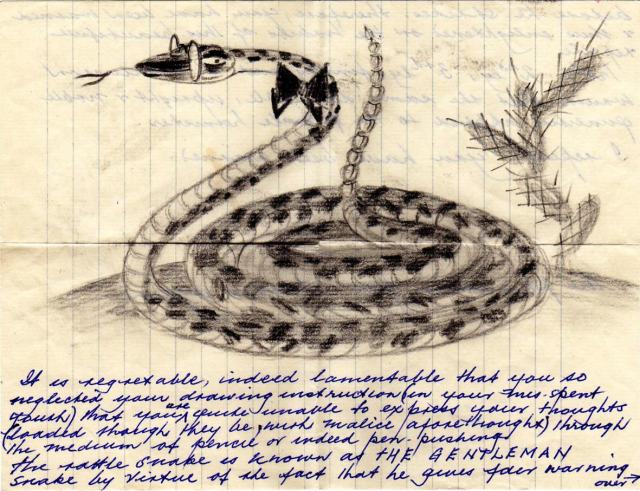 It is regretable, indeed lamentable that you so
neglected your drawing instruction (in your mis-spent
youth) that you are quite unable to express your thoughts
(loaded though they be, with malice aforethought) through
the medium of pencil or indeed pen-pushing
The rattle snake is known as THE GENTLEMAN
snake by virtue of the fact that he gives fair warning
over →